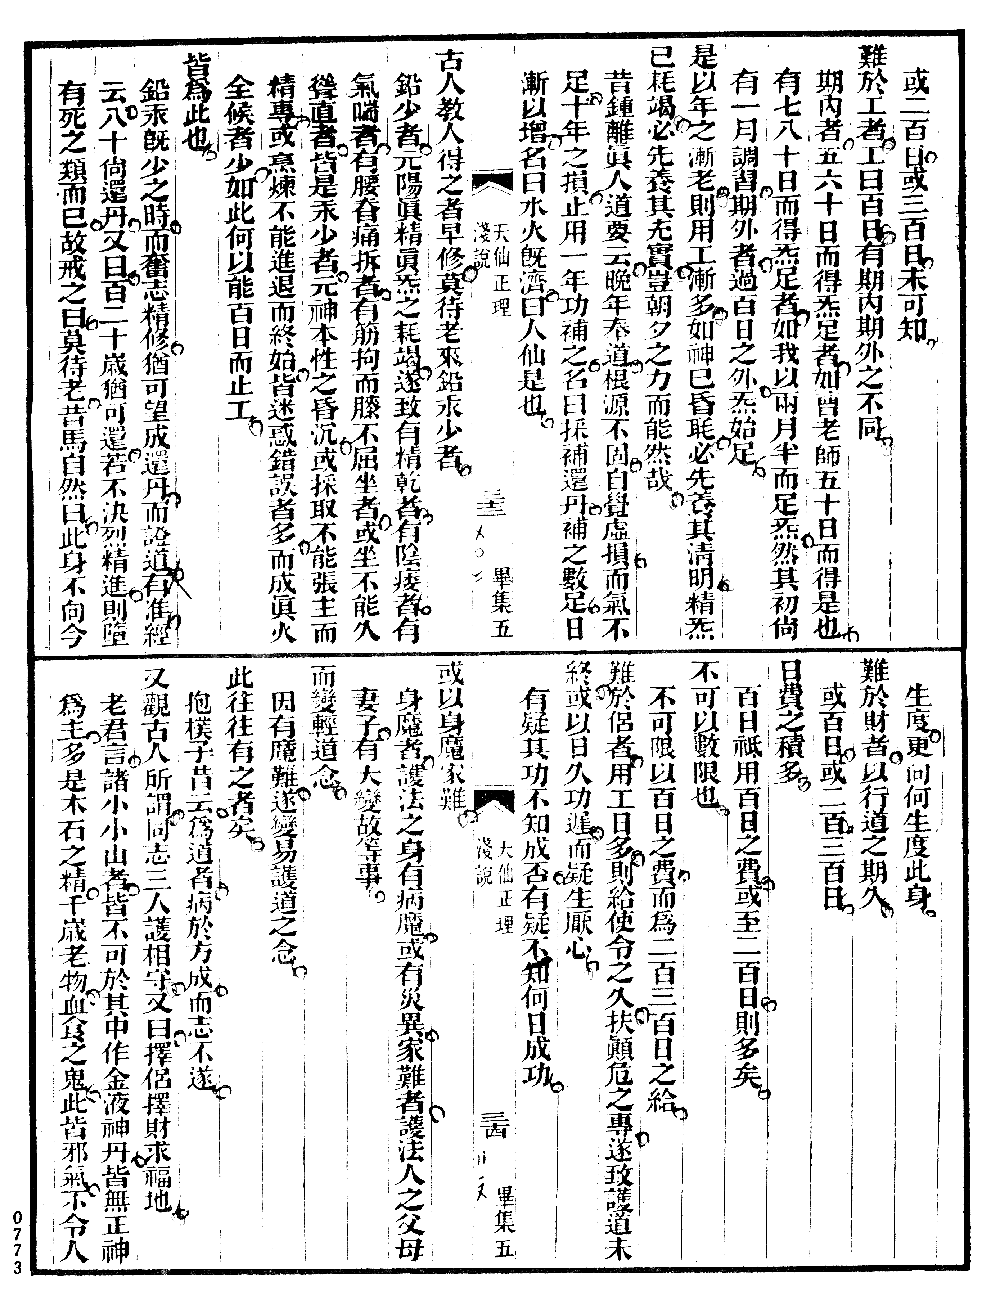 或二百日或三百日未可知
難於工者工曰百日有期內期外之不同
期內者五六十日而得炁足者如曹老師五十日而得是也
有七八十日而得炁足者如我以兩月半而足炁然其初尙
有一月調習期外者過百日之外炁始足
是以年之漸老則用工漸多如神已昏耗必先養其淸明精炁
已耗竭必先養其充實豈朝夕之力而能然哉
昔鍾離眞人道要云晚年奉道根源不固自覺虛損而氣不
足十年之損止用一年功補之名曰採補還丹補之數足日
漸以增名曰水火旣濟曰人仙是也
天仙正理
淺說
三三
畢集五
古人教人得之者早修莫待老來鉛汞少者
鉛少者元陽眞精眞炁之耗竭遂致有精乾者有陰痿者有
氣喘者有腰脊痛拆者有筋拘而膝不屈坐者或坐不能久
聳直者皆是汞少者元神本性之昏沉或採取不能張主而
精專或烹煉不能進退而終始皆迷惑錯誤者多而成眞火
全候者少如此何以能百日而止工
皆爲此也
鉛汞旣少之時而奮志精修猶可望成還丹而證道有准經
云八十尙還丹又曰百二十歲猶可還若不決烈精進則墮
有死之類而已故戒之曰莫待老昔馬自然曰此身不向今
生度更向何生度此身
難於財者以行道之期久
或百日或二百三百日
日費之積多
百日祇用百日之費或至二百日則多矣
不可以數限也
不可限以百日之費而爲二百三百日之給
難於侶者用工日多則給使令之久扶顚危之專遂致護道未
終或以日久功遲而疑生厭心
有疑其功不知成否有疑不知何日成功
天仙正理
淺說
三四
畢集五
或以身魔家難
身魔者護法之身有病魔或有災異家難者護法人之父母
妻子有大變故等事
而變輕道念
因有魔難遂變易護道之念
此往往有之者矣
抱樸子昔云爲道者病於方成而志不遂
又觀古人所謂同志三人護相守又曰擇侶擇財求福地
老君言諸小小山者皆不可於其中作金液神丹皆無正神
爲主多是木石之精千歲老物血食之鬼此皆邪氣不令人
0773